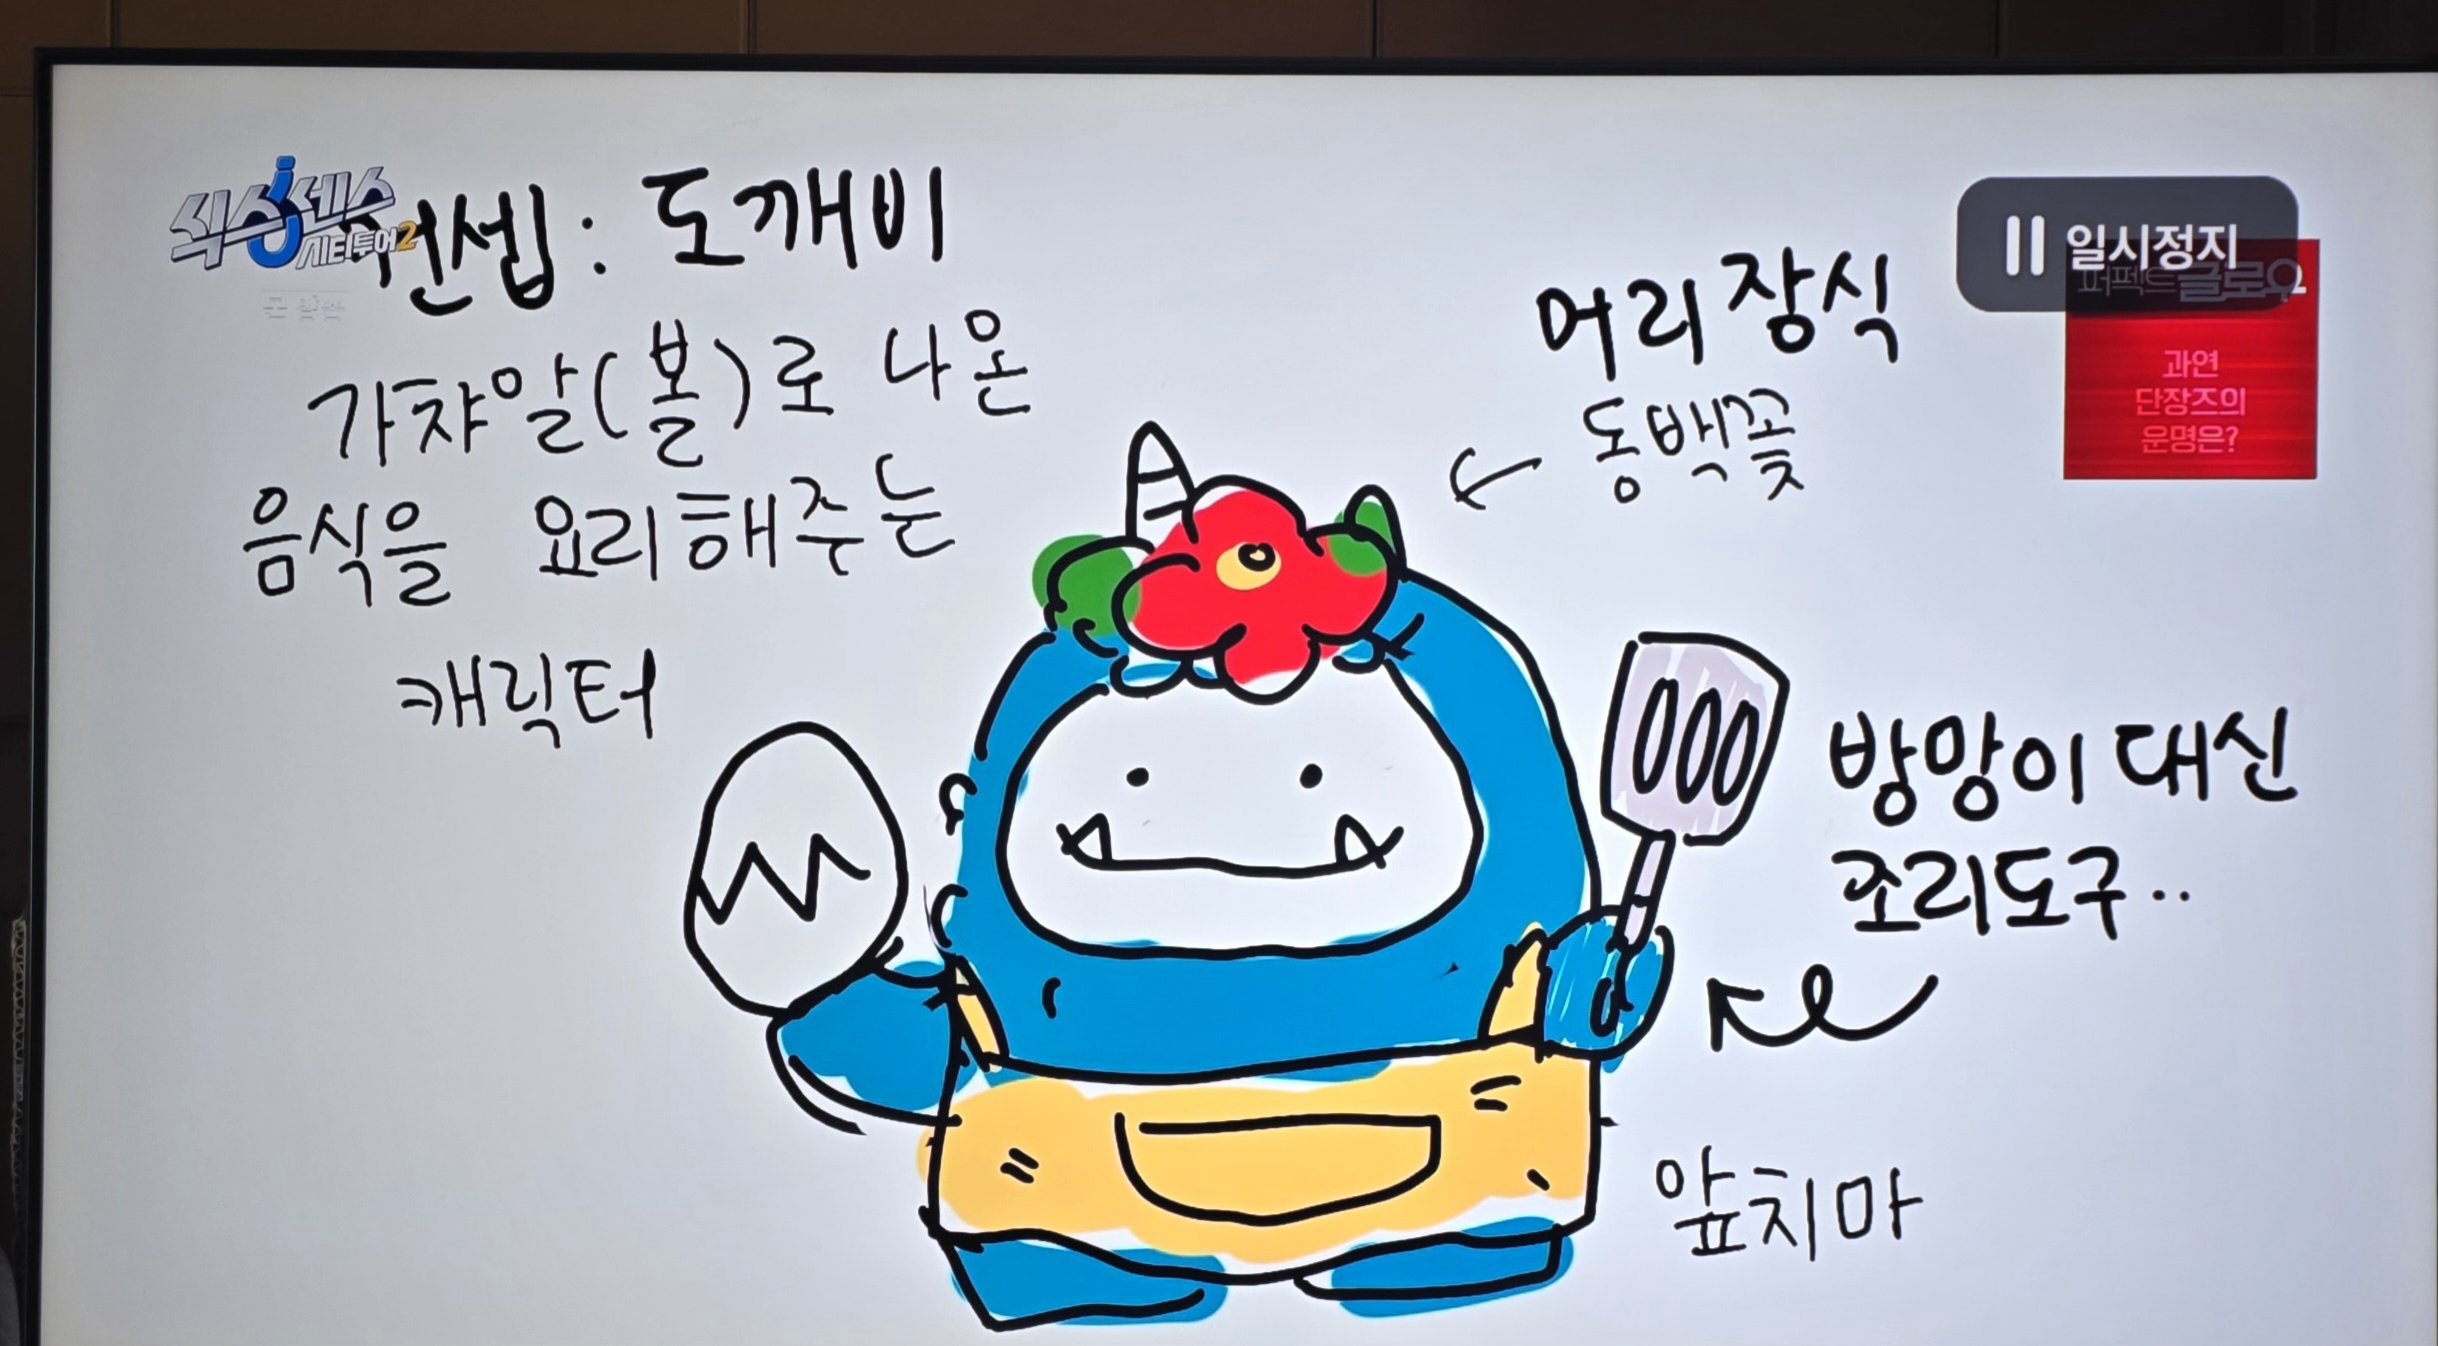 식스센스
시티투어2
컨셉 : 도깨비
가챠알(볼)로 나온
음식을 요리해주는
캐릭터
머리장식
동백꽃
일시정지
퍼펙트글로우
과연
단장즈의
운명은?
방망이 대신
조리도구..
앞치마